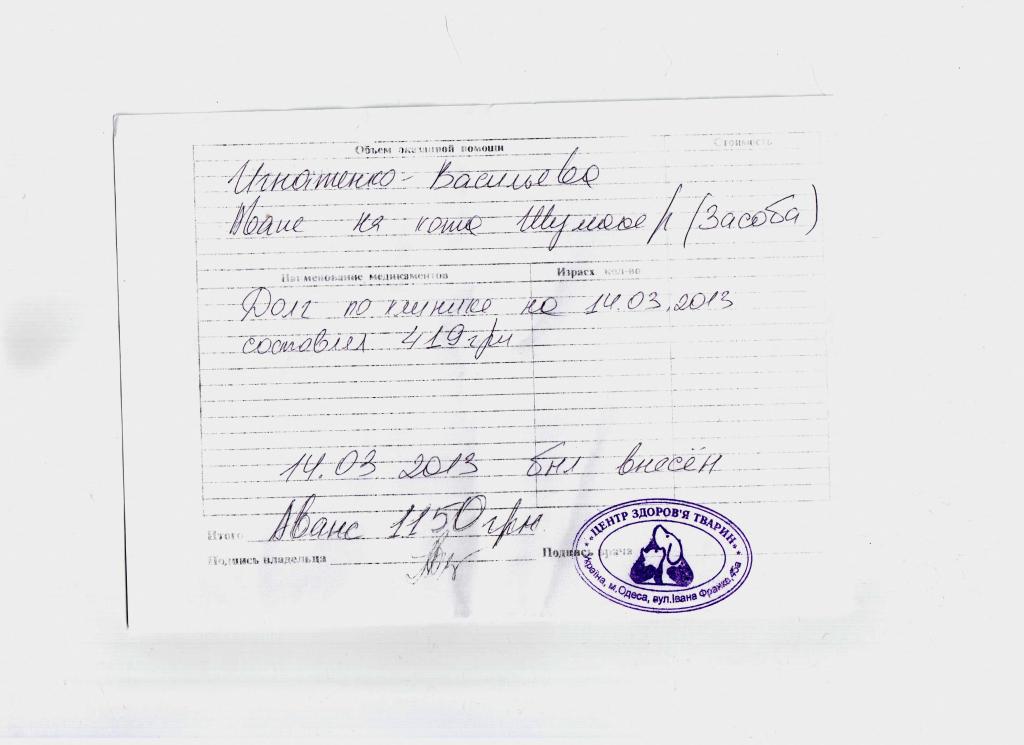 Объем оказанной помощи
Стоимость
Игнатенко-Васильева
Аванс на кота (Засоба)
Наименование медикаментов
Израсх кол-во
Долг по клинике на 14.03.2013
составлял 419 грн
14.03 2013 был внесён
Итого Аванс 1150 грн.
Подпись владельца
Подпись врача
«ЦЕНТР ЗДОРОВ'Я ТВАРИН»
Україна, м.Одеса, вул.Івана Франко, 45а